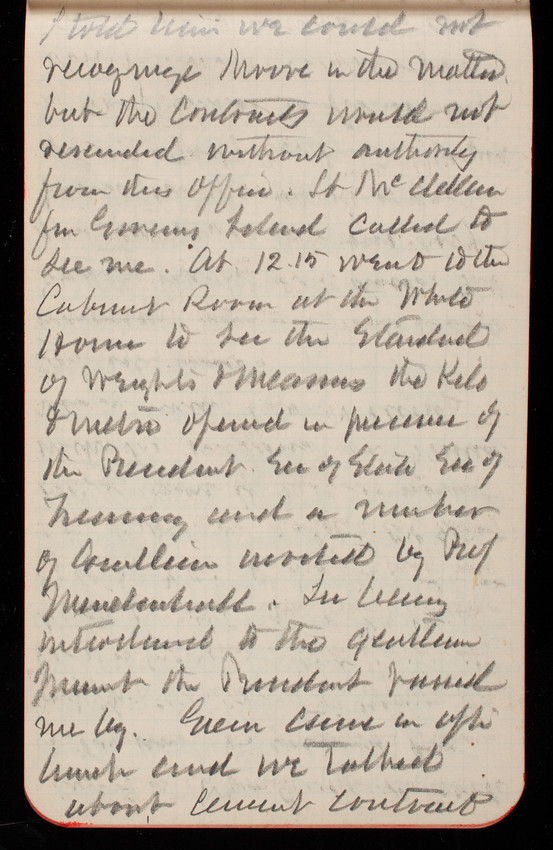 I told him we could not
recognize Moore in the matter
but the Contracts would not
rescinded without authority
from this office. Lt McClellan
fm Governs Island called to
see me. At 12.15 went to the
Cabinet Room at the White
House to see the Standard
of Weights & Measures the Kilo
& Metre opened in presence of
the President Sec of State Sec of
Treasury and a number
of Gentlemen invited by Prof
Mendenhall. In being
introduced to the gentlemen
present the President passed
me by. Green came in after
lunch and we talked
about Cement Contract